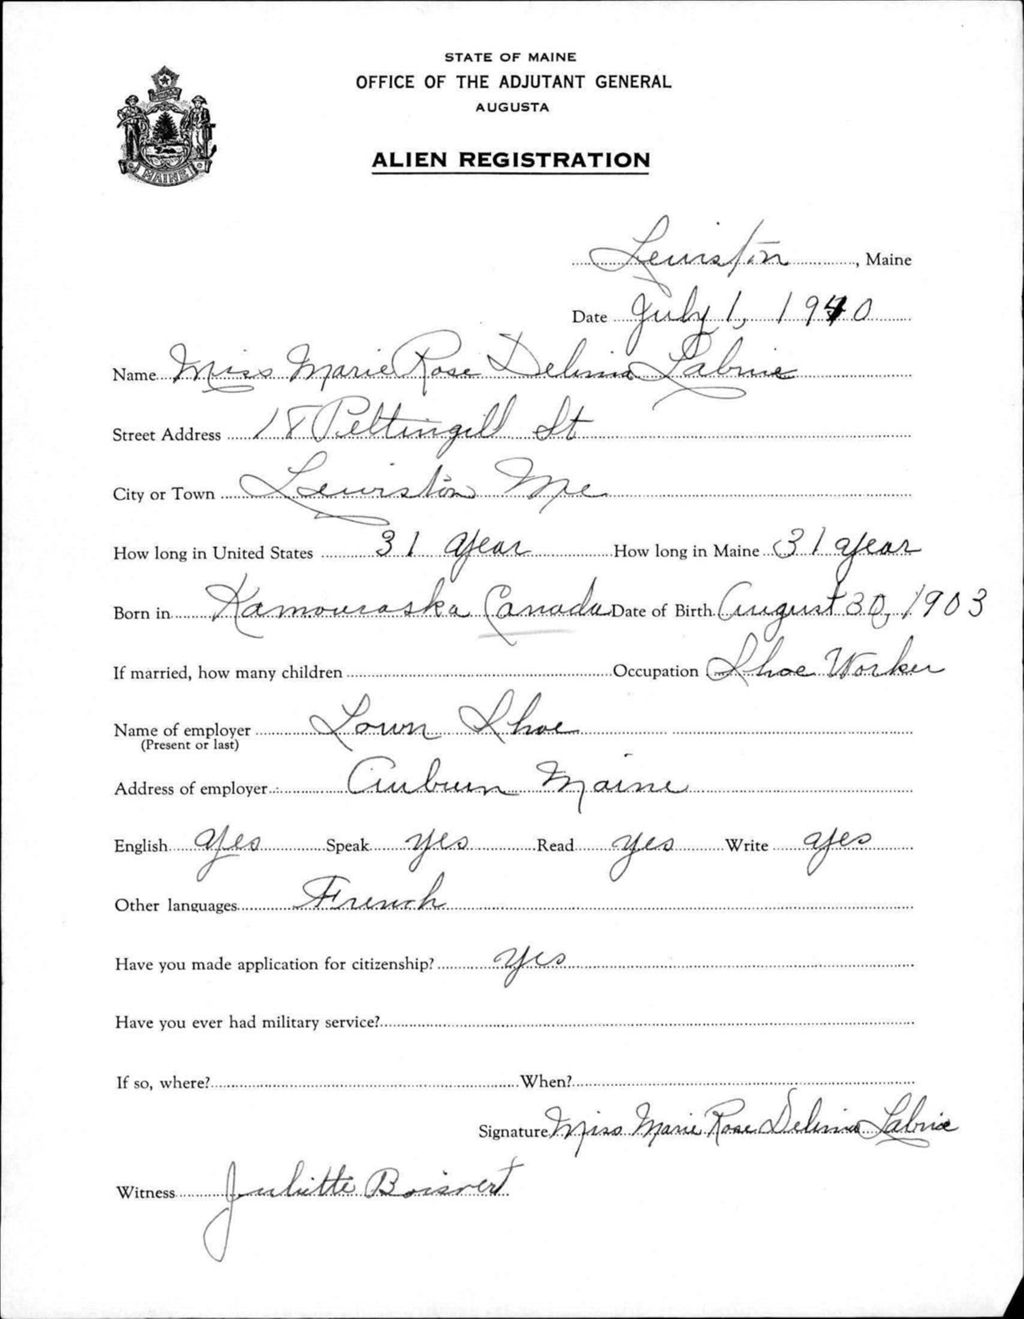 STATE OF MAINE
OFFICE OF THE ADJUTANT GENERAL
AUGUSTA
ALIEN REGISTRATION
MAINE
Lewiston, Maine
Date July 1, 1940
Name Miss Marie Rose Delima Labrie
Street Address 18 Pettingill St
City or Town Lewiston Me
How long in United States 31 year How long in Maine 31 year
Born in Kamouraska Canada Date of Birth August 30, 1903
If married, how many children Occupation Shoe Worker
Name of employer Lown Shoe
(Present or last)
Address of employer Auburn Maine
English yes Speak yes Read yes Write yes
Other languages French
Have you made application for citizenship? yes
Have you ever had military service?
If so, where? When?
Signature Miss Marie Rose Delima Labrie
Witness Juliette Boisvert